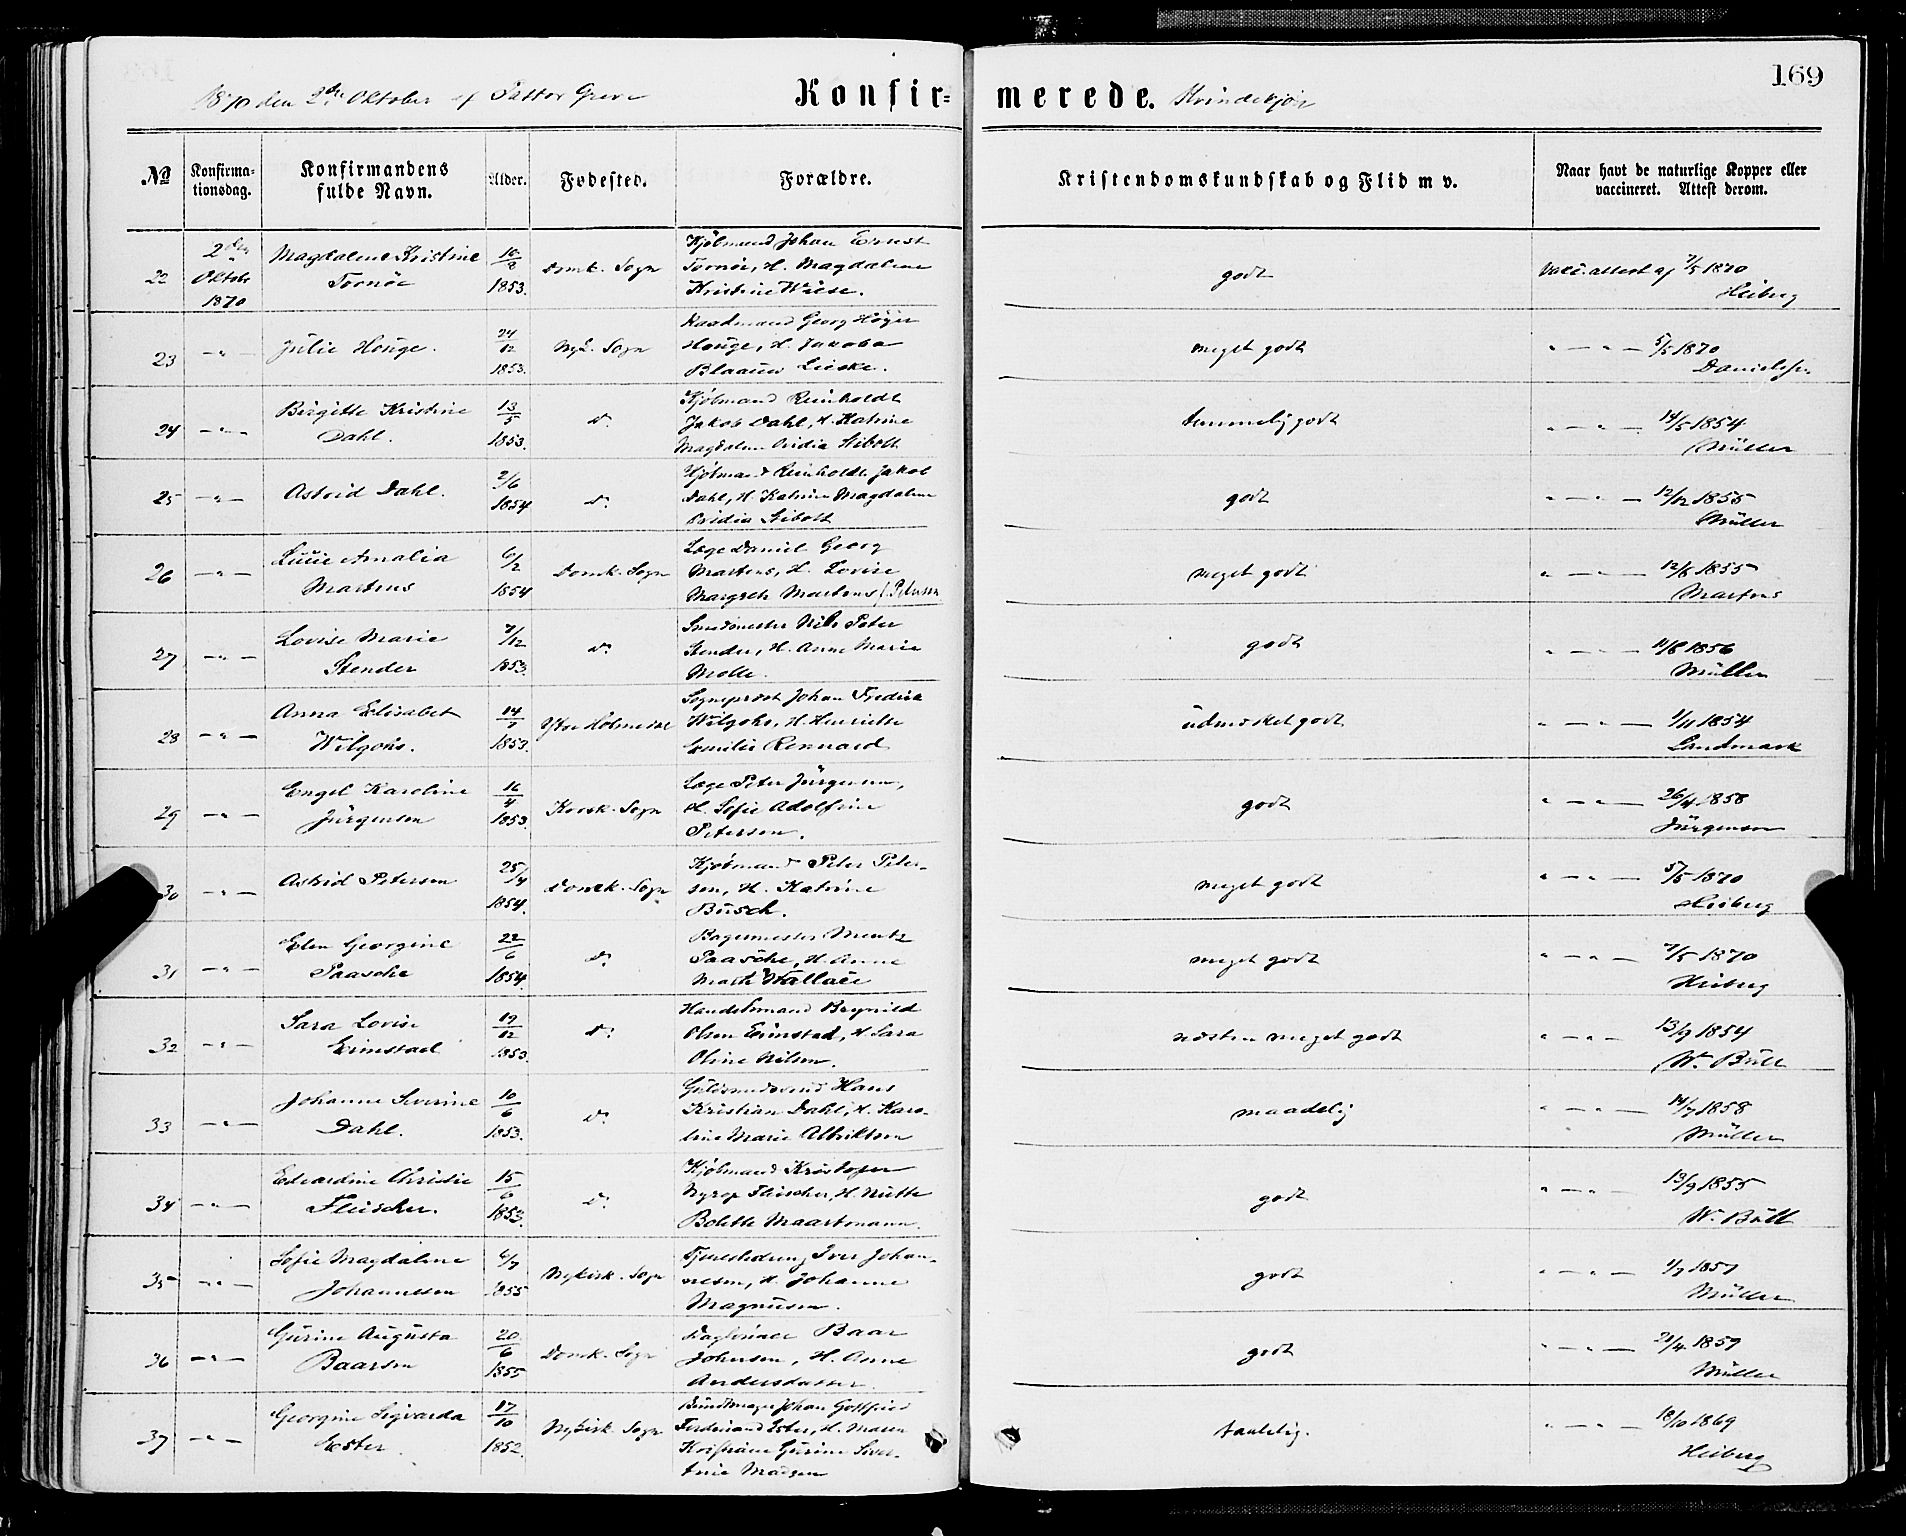 169
1870 den 2den Oktober af Pastor Greve
Konfir-
merede. Kvindekjøn
No
Konfirma-
tionsdag.
Konfirmandens
fulde Navn.
Alder.
Fødested.
Forældre.
Kristendomskundskab og Flid m v.
Naar havt de naturlige Kopper eller
vaccineret. Attest derom.
22
2den
Oktobr
1870
Magdalene Kristine
Tornøe
10/2
1853.
Domk. Sogn
Kjøbmand Johan Ernst
Tornøe, H. Magdalene
Kristine Wiese.
godt
Vacc. attest af 7/5 1870
Heiberg
23
— " —
Julie Houge.
24/12
1853.
Nyk. Sogn
Raadmand Georg Høyer
Houge, H. Jakoba
Blaauw
meget godt
" — " — 5/5 1870
Danielsen
24
— " —
Birgitte Kristine
Dahl.
13/5
1853.
do
Kjøbmand Reinholdt
Jakob Dahl, H. Katrine
Magdalene Ovidia Sibolt
temmelig godt
" — " — 14/5 1854
Müller
25
— " —
Astrid Dahl.
2/6
1854
do
Kjøbmand Reinholdt Jakob
Dahl, H. Katrine Magdalene
Ovidia Sibolt
godt
" — " — 12/12 1855
Müller
26
— " —
Amalia
Martens
6/2
1854
Domk. Sogn
Læge Daniel Georg
Martens, H. Lovise
Margrete Martens f. Petersen
meget godt
" — " — 12/8 1855
Martens
27
— " —
Lovise Marie
Stender
7/12
1853.
do
Smedmester Nils Peter
Stender, H. Anne Marie
Molle.
godt
" — " — 11/8 1856
Müller
28
— " —
Anna Elisabet
Wilgohs.
14/7
1853.
Ytre Holmedal
Sogneprest Johan Fredrik
Wilgohs, H. Henriette
Emilie Rennord
udmerket godt
" — " — 1/11 1854
Landmark
29
— " —
Engel Karoline
Jürgensen
16/4
1853.
Korsk. Sogn
Læge Peter Jürgensen,
H. Sofie Adolfine
Petersen.
godt
" — " — 26/4 1858
Jürgensen
30
— " —
Astrid Petersen
25/4
1854.
Domk. Sogn
Kjøbmand Peter Peter-
sen, H. Katrine
Busch.
meget godt
" — " — 5/5 1870
Heiberg
31
— " —
Elen Georgine
Paasche
22/6
1854.
do
Bagermester Mentz
Paasche, H. Anne
Marth Wallace
meget godt
" — " — 7/5 1870
Heiberg
32
— " —
Sara Lovise
Erimstad
19/12
1853.
do
Handelsmand Brynild
Olsen Erimstad, H. Sara
Oline Nilsen.
næsten meget godt
" — " — 13/9 1854
W. Bull
33
— " —
Johanne Severine
Dahl.
10/6
1853.
do
Guldsmedsvend Hans
Kristian Dahl, H. Karo-
line Marie Albriktsen
maadelig
" — " — 14/7 1858
Müller
34
— " —
Edvardine Christie
Fleischer.
15/6
1853.
do
Kjøbmand Kristofer
Nyrop Fleischer, H. Mitte
Bolette Maartmann.
godt
" — " — 13/9 1855
W. Bull
35
— " —
Sofie Magdalene
Johannesen
6/7
1855
Nykirk. Sogn
Tjenestedreng Iver Johan-
nesen, H. Johanne
Magnusen.
godt
" — " — 1/7 1857
Müller
36
— " —
Gurine Augusta
Baarsen
20/6
1855
Domk. Sogn
Dagleier Baar
Johnsen, H. Anne
Andersdatter.
godt
" — " — 21/4 1859
Müller
37
— " —
Georgine Sigvarda
Ester.
17/10
1852.
Nykirk. Sogn
Buntmager Johan Gottfried
Ferdinand Ester, H. Maren
Kristiane Gurine Sever-
tine Madsen
taalelig.
" — " — 18/10 1869
Heiberg